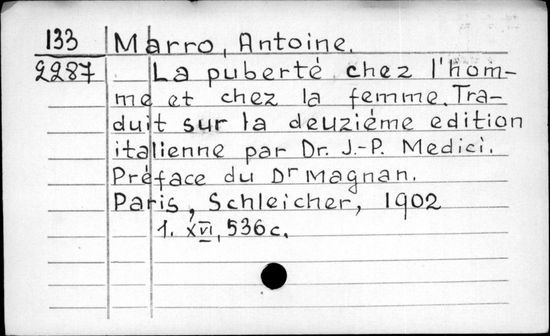 133 Marro, Antoine.
2287 La puberté chez l'hom-
me et chez la femme. Tra-
duit sur la deuziéme edition
italienne par Dr. J.-P. Medici.
Préface du Dr Magnan.
Paris, Schleicher, 1902
1. XVI, 536 c.